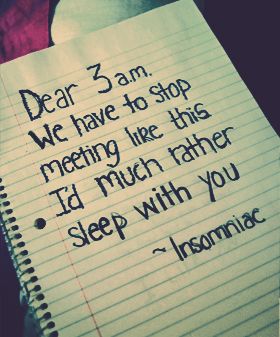 Dear 3 a.m.
We have to stop
meeting like this
I'd much rather
sleep with you
~Insomniac